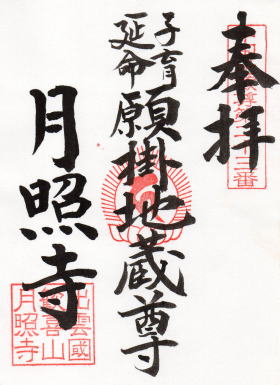 奉拝
三番
子育
延命
願掛地蔵尊
月照寺
出雲國
喜山
月照寺